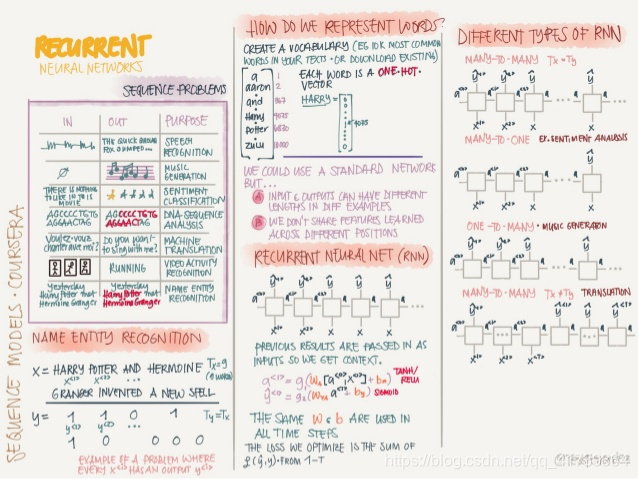 RECURRENT
NEURAL NETWORKS
SEQUENCE PROBLEMS
IN OUT PURPOSE
THE QUICK BROWN FOX JUMPED... SPEECH RECOGNITION
∅ MUSIC GENERATION
THERE IS NOTHING TO LIKE IN THIS MOVIE SENTIMENT CLASSIFICATION
AGCCCCTGTG AGGAACTAG AGCCCCTGTG AGGAACTAG DNA-SEQUENCE ANALYSIS
Voulez-vous chanter avec moi? Do you want to sing with me? MACHINE TRANSLATION
RUNNING VIDEO ACTIVITY RECOGNITION
Yesterday Harry Potter met Hermione Granger Yesterday Harry Potter met Hermione Granger NAME ENTITY RECOGNITION
NAME ENTITY RECOGNITION
X = HARRY POTTER AND HERMOINE Tx=9
x<1> x<2> ... (9 WORDS)
GRANGER INVENTED A NEW SPELL
y = 1 1 0 1 Ty=Tx
y<1> y<2>
1 0 0 0 0
EXAMPLE OF A PROBLEM WHERE
EVERY X<i> HAS AN OUTPUT y<i>
SEQUENCE MODELS · COURSERA
HOW DO WE REPRESENT WORDS?
CREATE A VOCABULARY (EG 10K MOST COMMON
WORDS IN YOUR TEXTS · OR DOWNLOAD EXISTING)
a 1
aaron 2
and 367
Harry 4075
potter 6830
zulu 10000
EACH WORD IS A ONE·HOT·
VECTOR
HARRY =
4075
WE COULD USE A STANDARD NETWORK
BUT...
A INPUT & OUTPUTS CAN HAVE DIFFERENT
LENGTHS IN DIFF EXAMPLES
B WE DON'T SHARE FEATURES LEARNED
ACROSS DIFFERENT POSITIONS
RECURRENT NEURAL NET (RNN)
PREVIOUS RESULTS ARE PASSED IN AS
INPUTS SO WE GET CONTEXT.
TANH/
RELU
SIGMOID
THE SAME W & b ARE USED IN
ALL TIME STEPS
THE LOSS WE OPTIMIZE IS THE SUM OF
L(ŷ,y) · FROM 1-T
DIFFERENT TYPES OF RNN
MANY-TO-MANY Tx=Ty
MANY-TO-ONE EX. SENTIMENT ANALYSIS
ONE-TO-MANY · MUSIC GENERATION
MANY-TO-MANY Tx≠Ty TRANSLATION